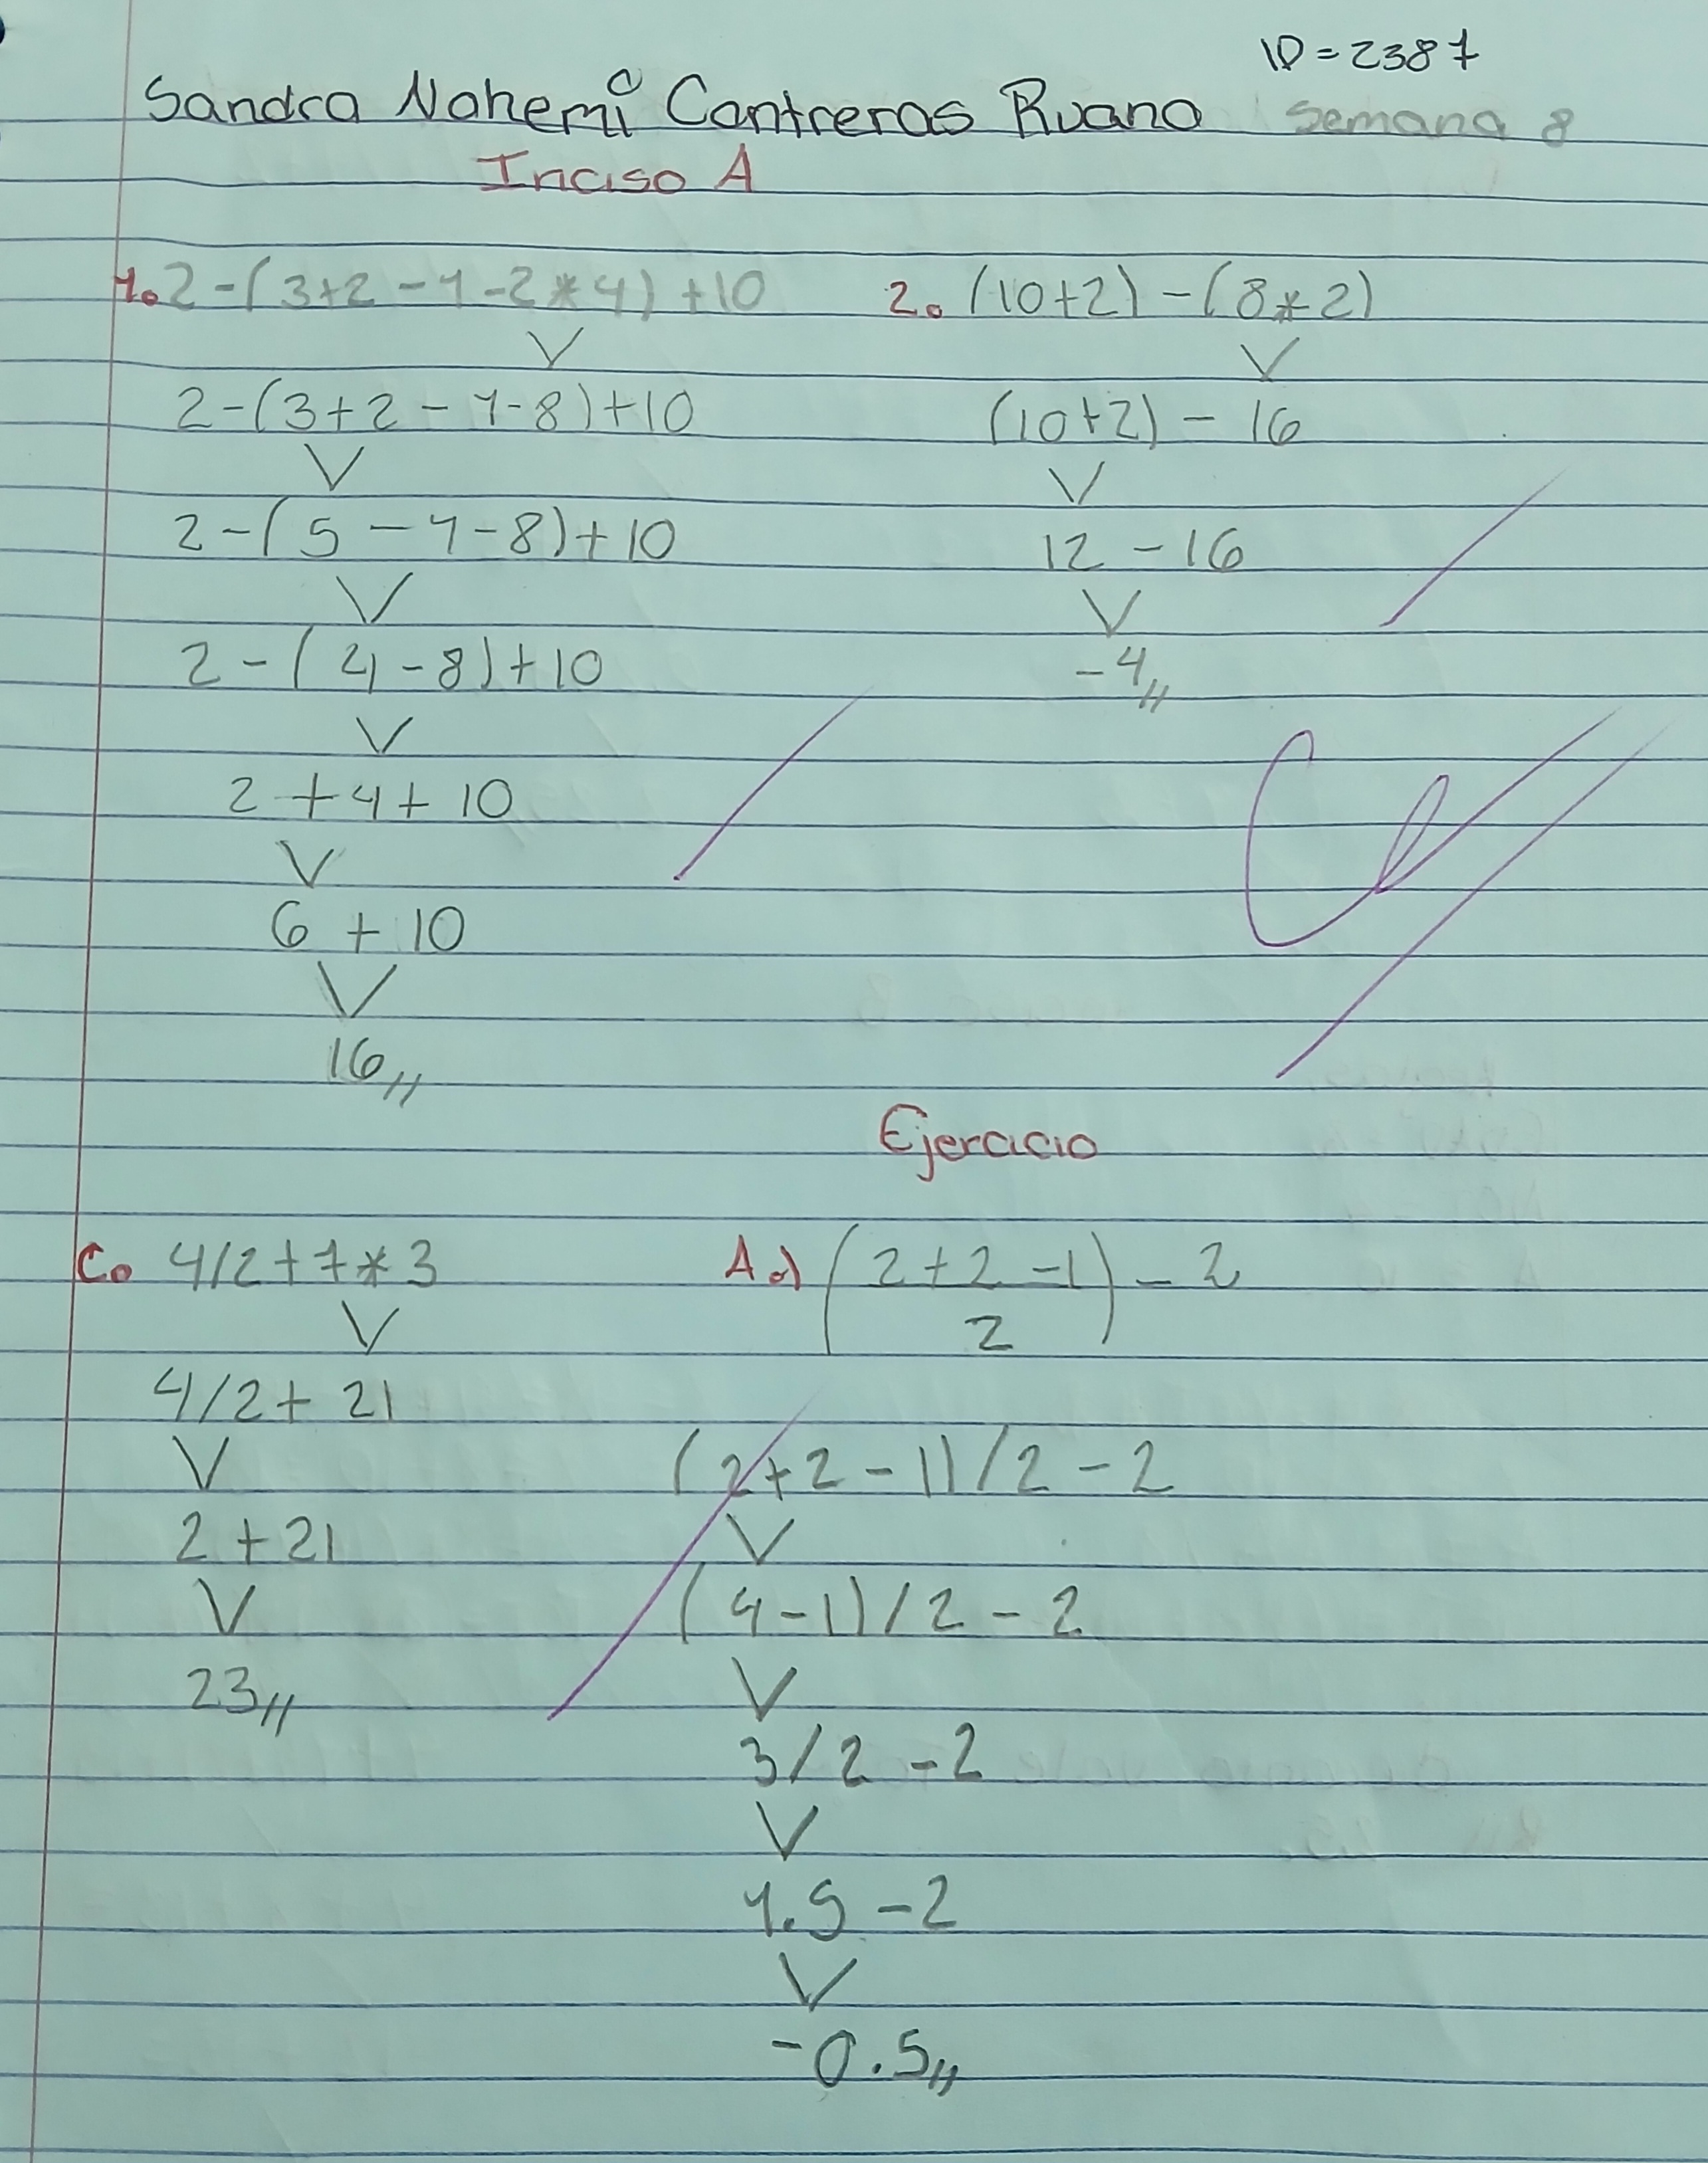 ID = 2387
Sandra Nohemí Contreras Ruano Semana 8
Inciso A
1. 2-(3+2-1-2*4)+10
2-(3+2-1-8)+10
2-(5-1-8)+10
2-(4-8)+10
2+4+10
6+10
16
2. (10+2)-(8*2)
(10+2)-16
12-16
-4
Ejercicio
C. 4/2+7*3
4/2+21
2+21
23
A.) (2+2-1)-2
2
(2+2-1)/2-2
(4-1)/2-2
3/2-2
1.5-2
-0.5